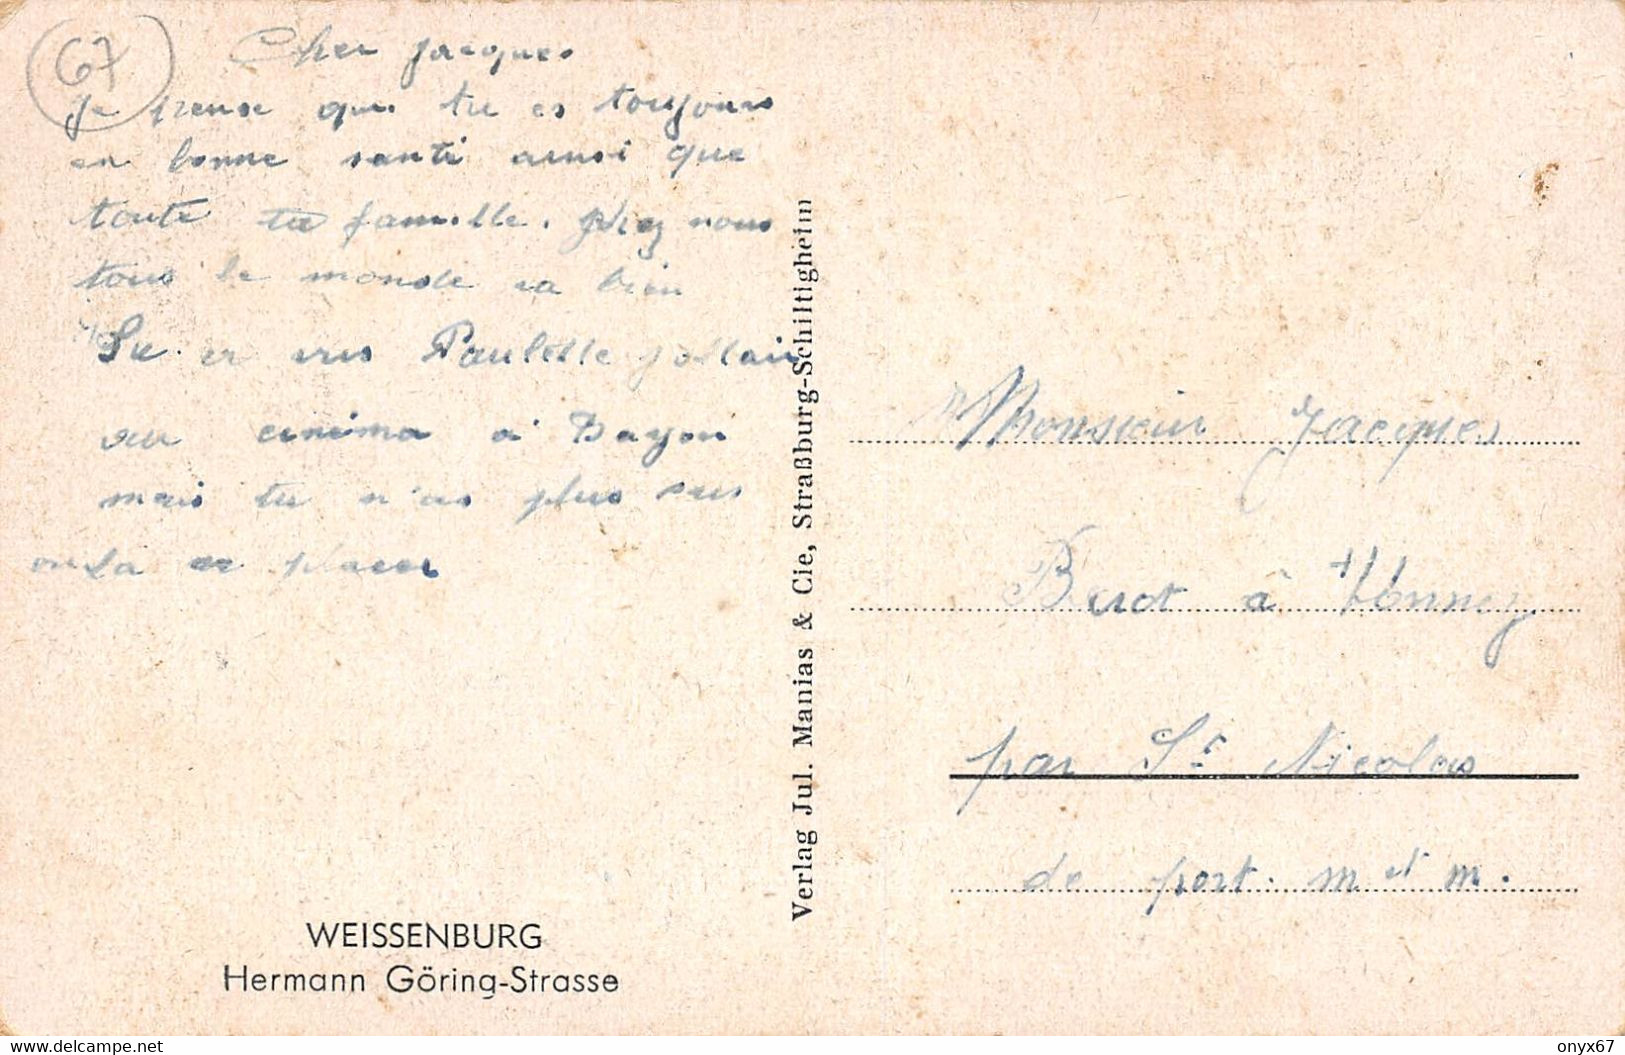 67
Cher Jacques
Je pense que tu es toujours
en bonne santé ainsi que
toute ta famille. Chez nous
tous le monde va bien
vus Paulette
au cinéma à Bayon
mais tu n'as plus
place
Verlag Jul. Manias & Cie, Straßburg-Schiltigheim
Monsieur Jacques
à
par St Nicolas
de port. m et m.
WEISSENBURG
Hermann Göring-Strasse
delcampe.net
onyx67